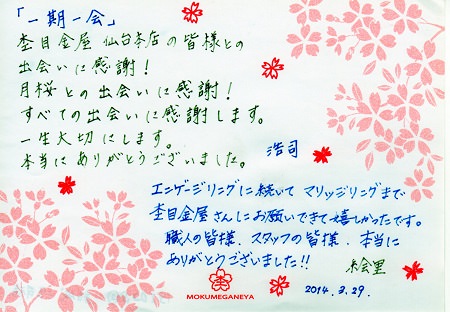 「一期一会」
杢目金屋 仙台本店の皆様との
出会いに感謝!
月桜との出会いに感謝!
すべての出会いに感謝します。
一生大切にします。
本当にありがとうございました。
浩司
エンゲージリングに続いて マリッジリングまで
杢目金屋さんにお願いできて嬉しかったです。
職人の皆様、スタッフの皆様、本当に
ありがとうございました!!
絵里
MOKUMEGANEYA
2014.3.29.